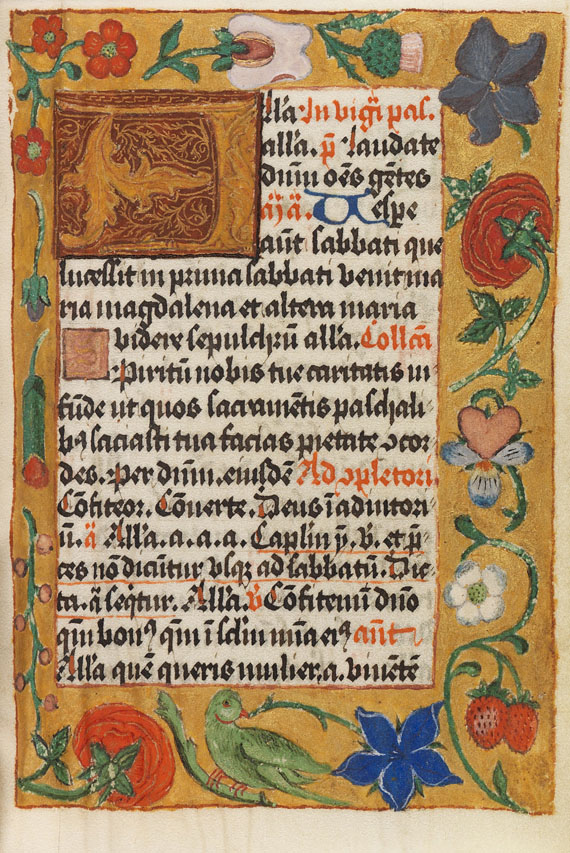 All'a In vig̃ pas.
all'a. p̃ laudate
dn̄m oēs gētes
Vespe
aut̄ sabbati que
lucessit in prima sabbati venit ma
ria magdalena et altera maria
videre sepulchrū all'a. Collcā
Spiritū nobis tue caritatis in
fūde ut quos sacramētis paschali
bꝰ saciasti tua facias pietate ꝯcor
des. Per dn̄m. eiusdē Ad ꝯpletori
Cōfiteor. Cōuerte. Deus ī adiutori
ū. ā All'a. a. a. a. Caplm̄ ẏ. et p̄
ces nō dicūtur vsqꝫ ad sabbatū. Dic
ta. ā seq̄tur. All'a. V̄ Cōfitemī dn̄o
qm̄ bonꝰ qm̄ ī sclm̄ mīa eiꝰ ant̄
All'a quē queris mulier. a. viuētē